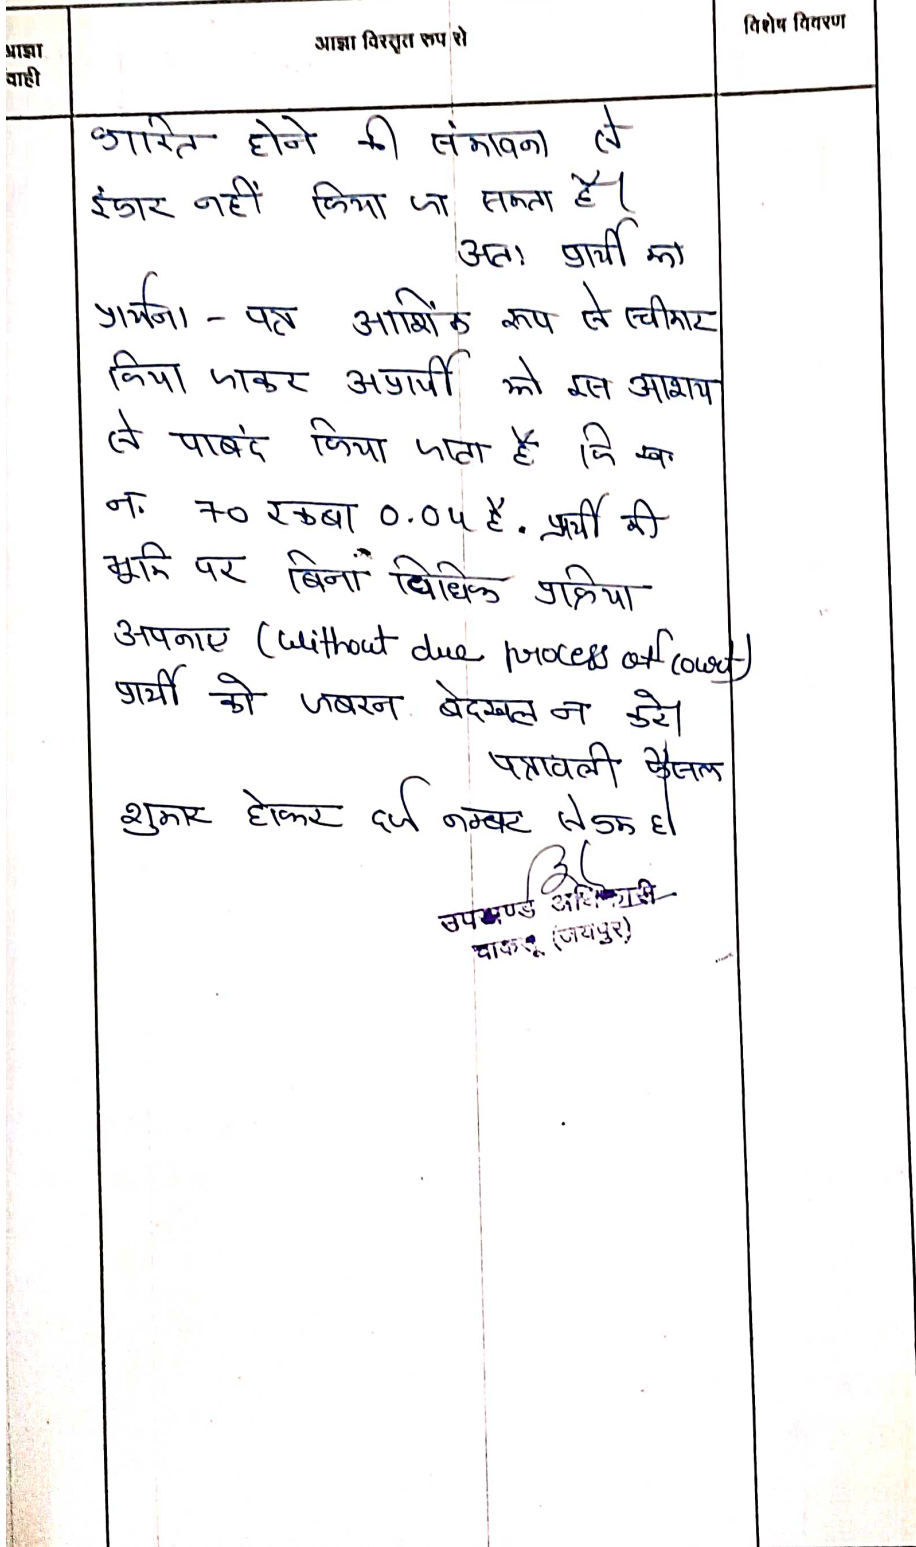 आज्ञा
वाही
आज्ञा विस्तृत रूप से
विशेष विवरण
कारित होने की संभावना से
इंकार नहीं किया जा सकता है।
अतः प्रार्थी का
प्रार्थना - पत्र आंशिक रूप से स्वीकार
किया जाकर अप्रार्थी को इस आशय
से पाबंद किया जाता है कि ख.
न. 70 रकबा 0.04 है. प्रार्थी की
भूमि पर बिना विधिक प्रक्रिया
अपनाए (without due process of court)
प्रार्थी को जबरन बेदखल न करे।
पत्रावली फैसल
शुमार होकर दर्ज नम्बर से कम हो
उपखण्ड अधिकारी
चाकसू (जयपुर)